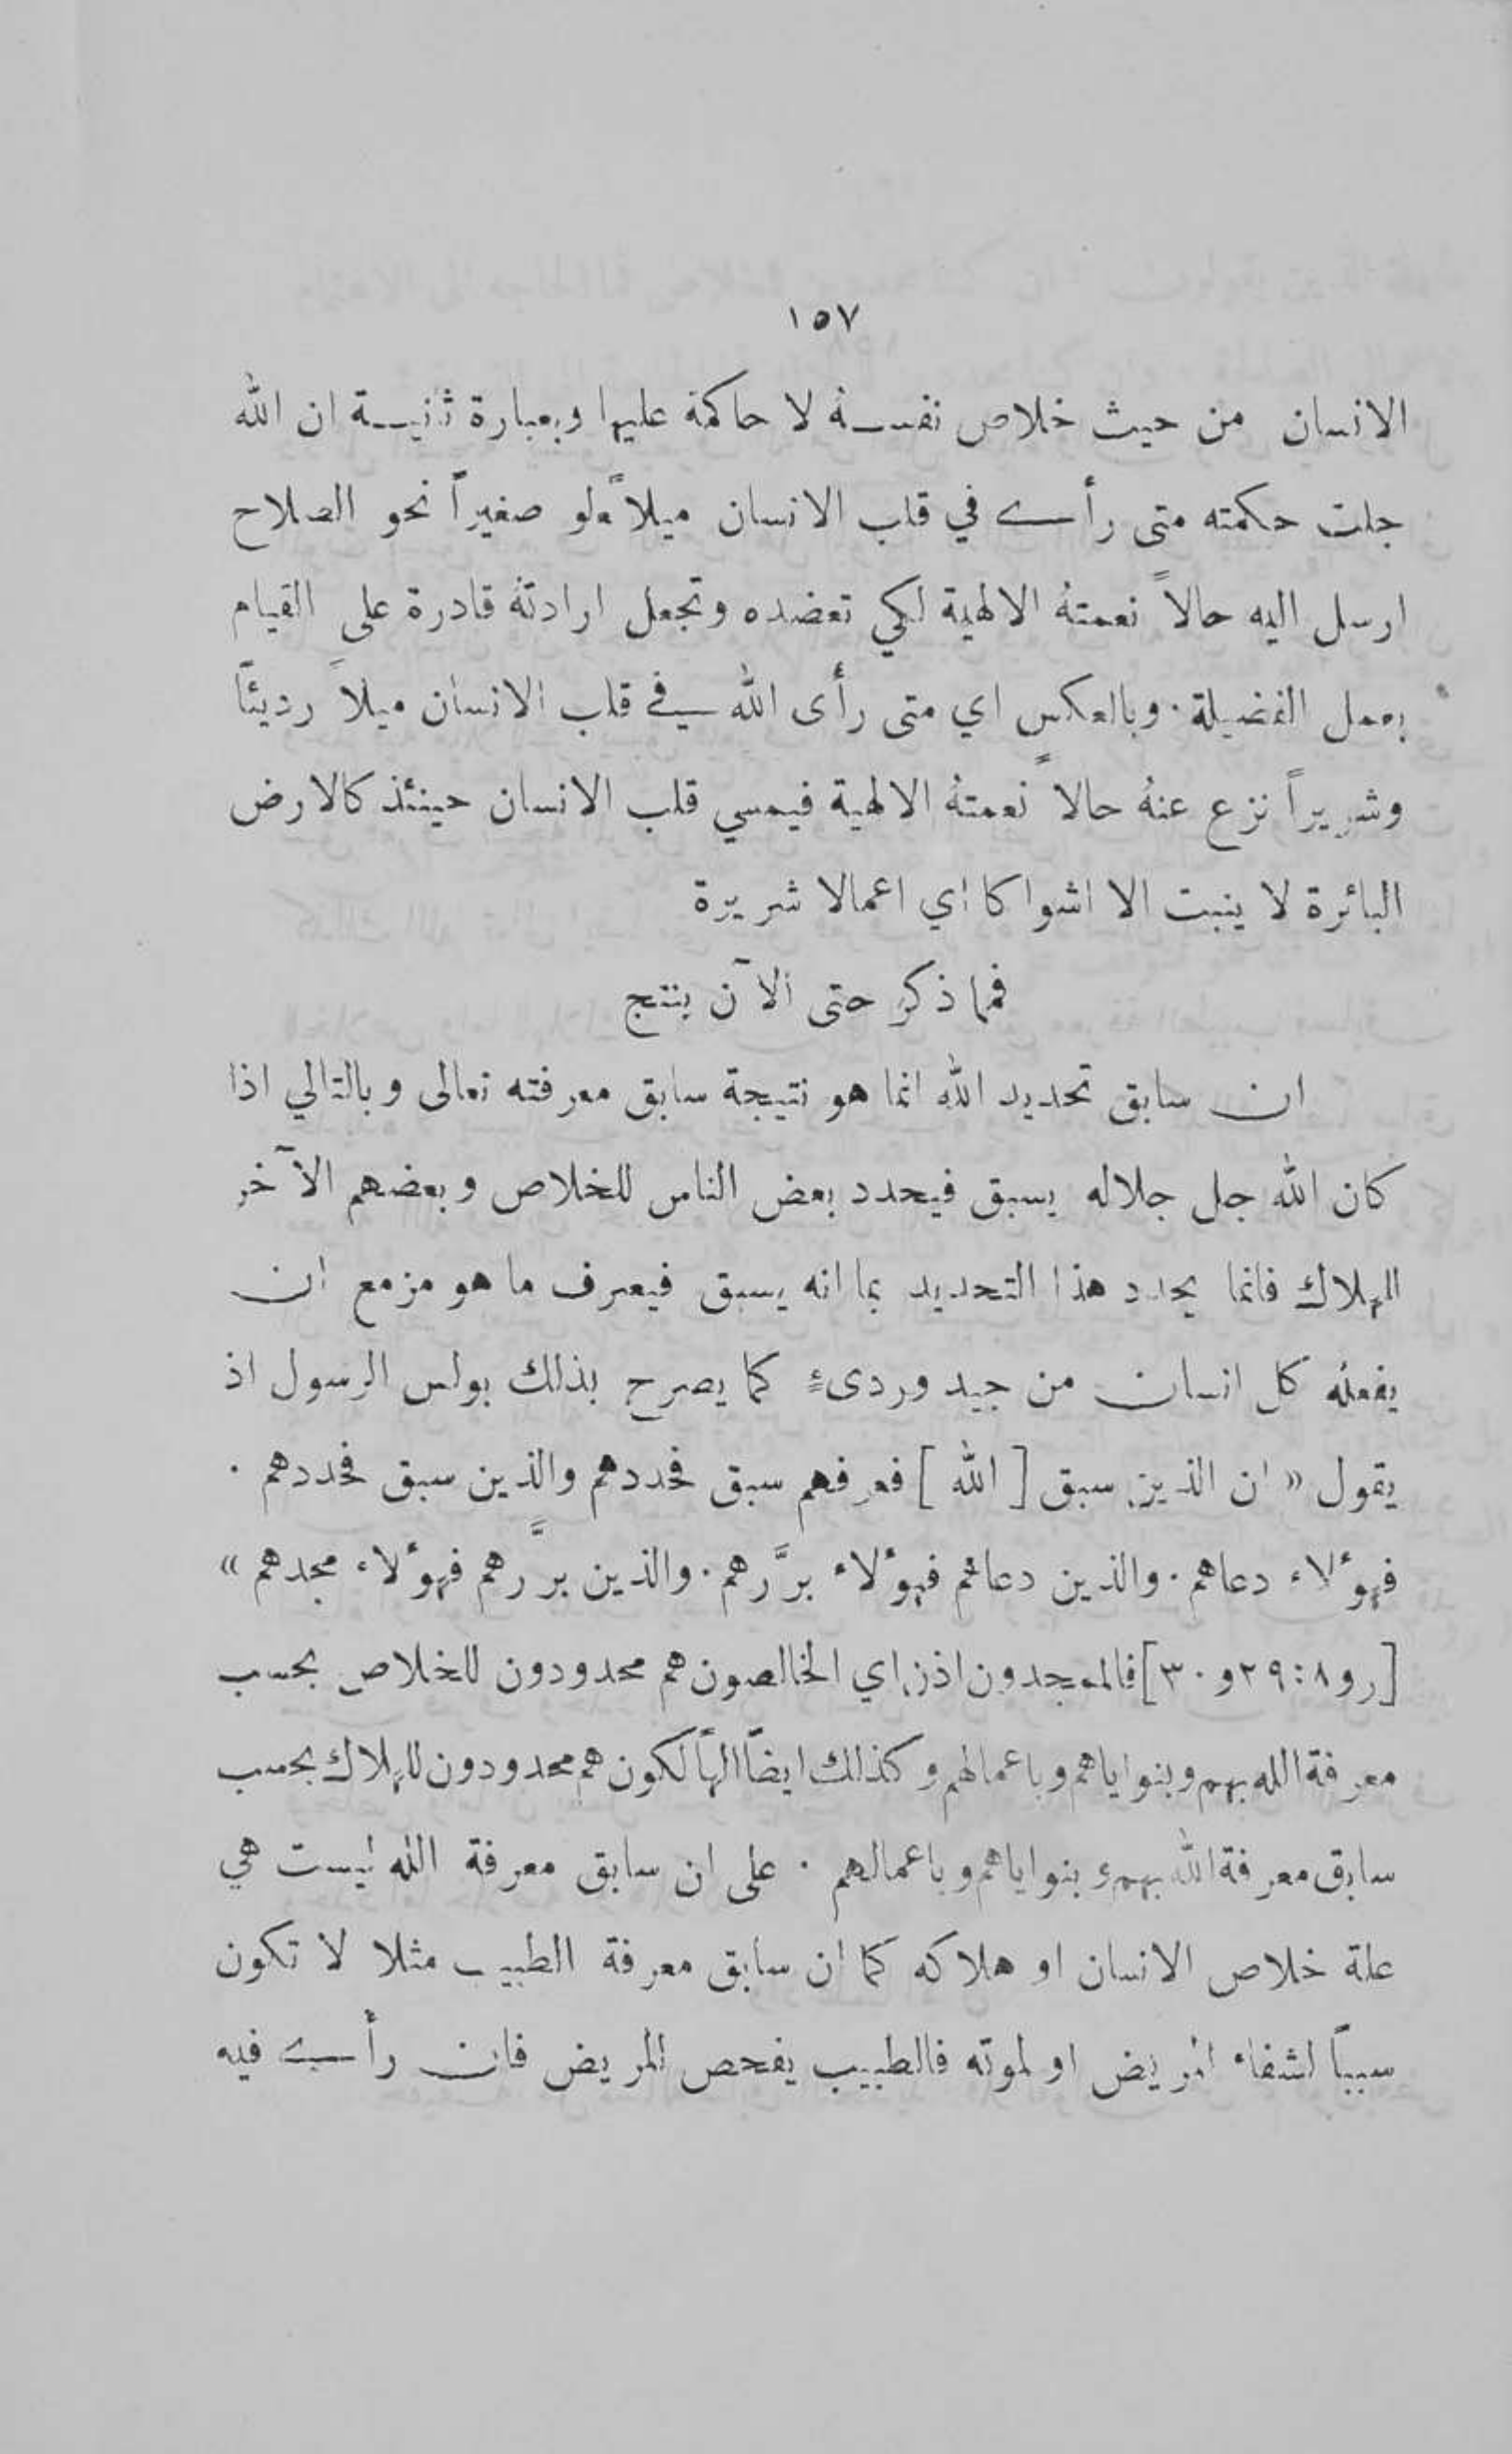 ١٥٧
الانسان من حيث خلاص نفسهُ لا حاكمة عليها وبعبارة ثنيـة ان الله
جلت حكمته متى رأى في قلب الانسان ميلاً ولو صغيراً نحو الصلاح
ارسل اليه حالاً نعمتهُ الالهية لكي تعضده وتجعل ارادتهُ قادرة على القيام
بعمل الفضيلة . وبالعكس اي متى رأى الله في قلب الانسان ميلاً رديئًا
وشريراً نزع عنهُ حالاً نعمتهُ الالهية فيمسي قلب الانسان حينئذ كالارض
البائرة لا ينبت الا اشواكا اي اعمالا شريرة
فمما ذكر حتى الآن ينتج
ان سابق تحديد الله انما هو نتيجة سابق معرفته تعالى وبالتالي اذا
كان الله جل جلاله يسبق فيحدد بعض الناس للخلاص وبعضهم الآخر
للهلاك فانما يحدد هذا التحديد بما انه يسبق فيعرف ما هو مزمع ان
يفعله كل انسان من جيد وردىءٍ كما يصرح بذلك بولس الرسول اذ
يقول « ان الذين سبق [ الله ] فعرفهم سبق فحددهم والذين سبق فحددهم .
فهوٴلاء دعاهم . والذين دعاهم فهوٴلاء برَّرهم . والذين برَّرهم فهوٴلاء مجدهم »
[رو ٨ : ٢٩ و ٣٠] فالممجدون اذن اي الخالصون هم محدودون للخلاص بحسب
معرفة الله بهم وبنواياهم وباعمالهم وكذلك ايضًا الهالكون هم محدودون للهلاك بحسب
سابق معرفة الله بهم وبنواياهم وباعمالهم . على ان سابق معرفة الله ليست هي
علة خلاص الانسان او هلاكه كما ان سابق معرفة الطبيب مثلا لا تكون
سببًا لشفاء المريض او لموته فالطبيب يفحص المريض فان رأى فيه